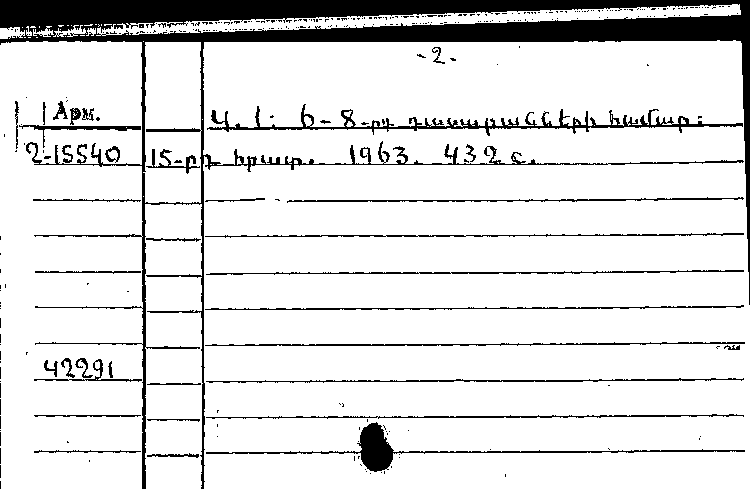 -2.
Арм. Կ. 1: 6-8-րդ դասարանների համար:
2-15540 15-րդ հրատ. 1963. 432 с.
42291